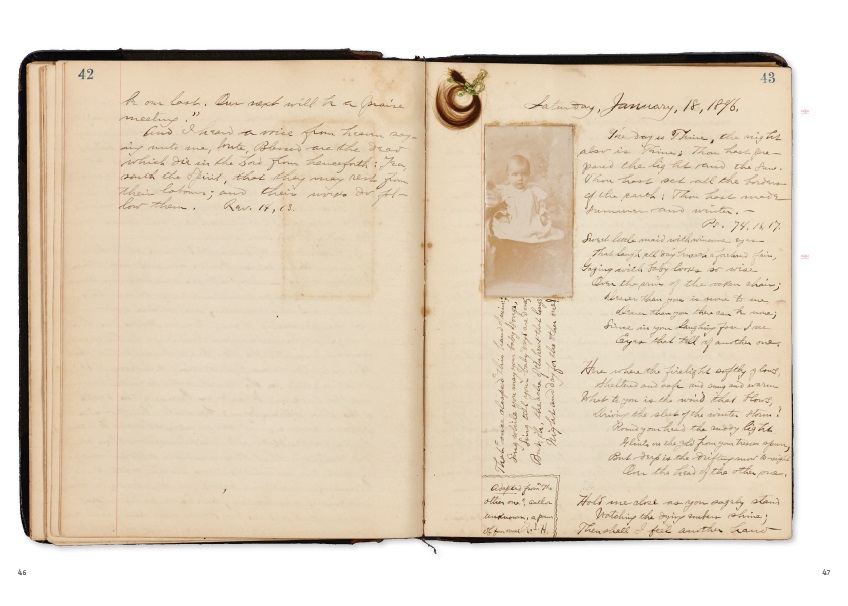 42
be our last. Our next will be a praise
meeting."
And I heard a voice from heaven say-
ing unto me, write, Blessed are the dead
which die in the Lord from henceforth: Yea,
saith the Spirit, that they may rest from
their labours; and their works do fol-
low them. Rev. 14, 13.
43
Saturday, January, 18, 1896.
The day is Thine, the night
also is Thine; Thou hast pre-
pared the light and the sun.
Thou hast set all the borders
of the earth; Thou hast made
summer and winter. —
Ps. 74, 16, 17.
Sweet little maid with winsome eyes
That laugh all day through a forehead fair,
Gazing with baby looks so wise
Over the arm of the oaken chair;
Dearer than you is none to me,
Dearer than you there can be none;
Since in your laughing face I see
Eyes that tell of another one.
Here where the firelight softly glows,
Sheltered and safe and snug and warm
What to you is the wind that blows,
Driving the sleet of the winter storm?
Round your head the ruddy light
Glints on the gold from your tresses spun,
But deep is the drifting snow to-night
Over the head of the other one.
Hold me close as you sagely stand
Watching the dying embers shine;
Then shall I feel another hand
That once clasped this hand
Sing while you may your baby songs,
Sing till your baby days are done;
But, oh, the ache of the heart that longs
Night and day for the other one!
Adapted from "The
other one", author
unknown,
46
47